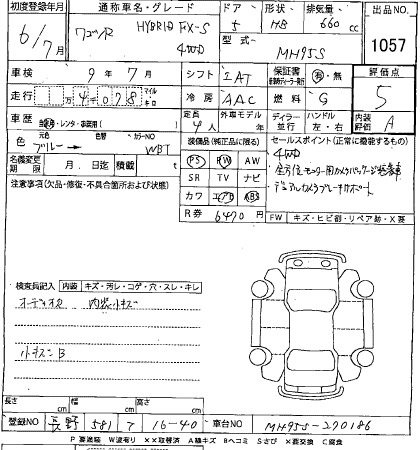 初度登録年月 通称車名・グレード ドア 形状 排気量 出品NO
6/7 ワゴンR HYBRID FX-S 4WD 5 HB 660 cc 1057
型式 MH95S
車検 9年7月 シフト IAT 保証書 有・無 評価点
走行 万 4,028 マイル キロ 冷房 AAC 燃料 G 5
車歴 自家用・レンタ・事業用( ) 定員 4人 外車モデル 年 ディーラー 並行 ハンドル 左・右 内装評価 A
色 元色 ブルー → カラーNO WBT 装備品(純正品に限る) セールスポイント(正常に機能するもの)
名義変更期限 月 日迄 積載 PS PW AW 4WD
注意事項(欠品・修復・不具合箇所および状態) SR TV ナビ 全方位モニター用カメラパッケージ装着車
カワ エアB ABS デュアルカメラブレーキサポート
R券 6470 円 FW キズ・ヒビ割・リペア跡・X要
検査員記入 内装 キズ・汚レ・コゲ・穴・スレ・キレ
オーディオレス 内装小キズ
小キズ B
長さ cm 幅 cm 高さ cm
登録NO 長野 581 て 16-40 車台NO MH95S-270186
P 要塗装 W波有り ××取替済 A線キズ Bヘコミ Sさび ×要交換 C腐食